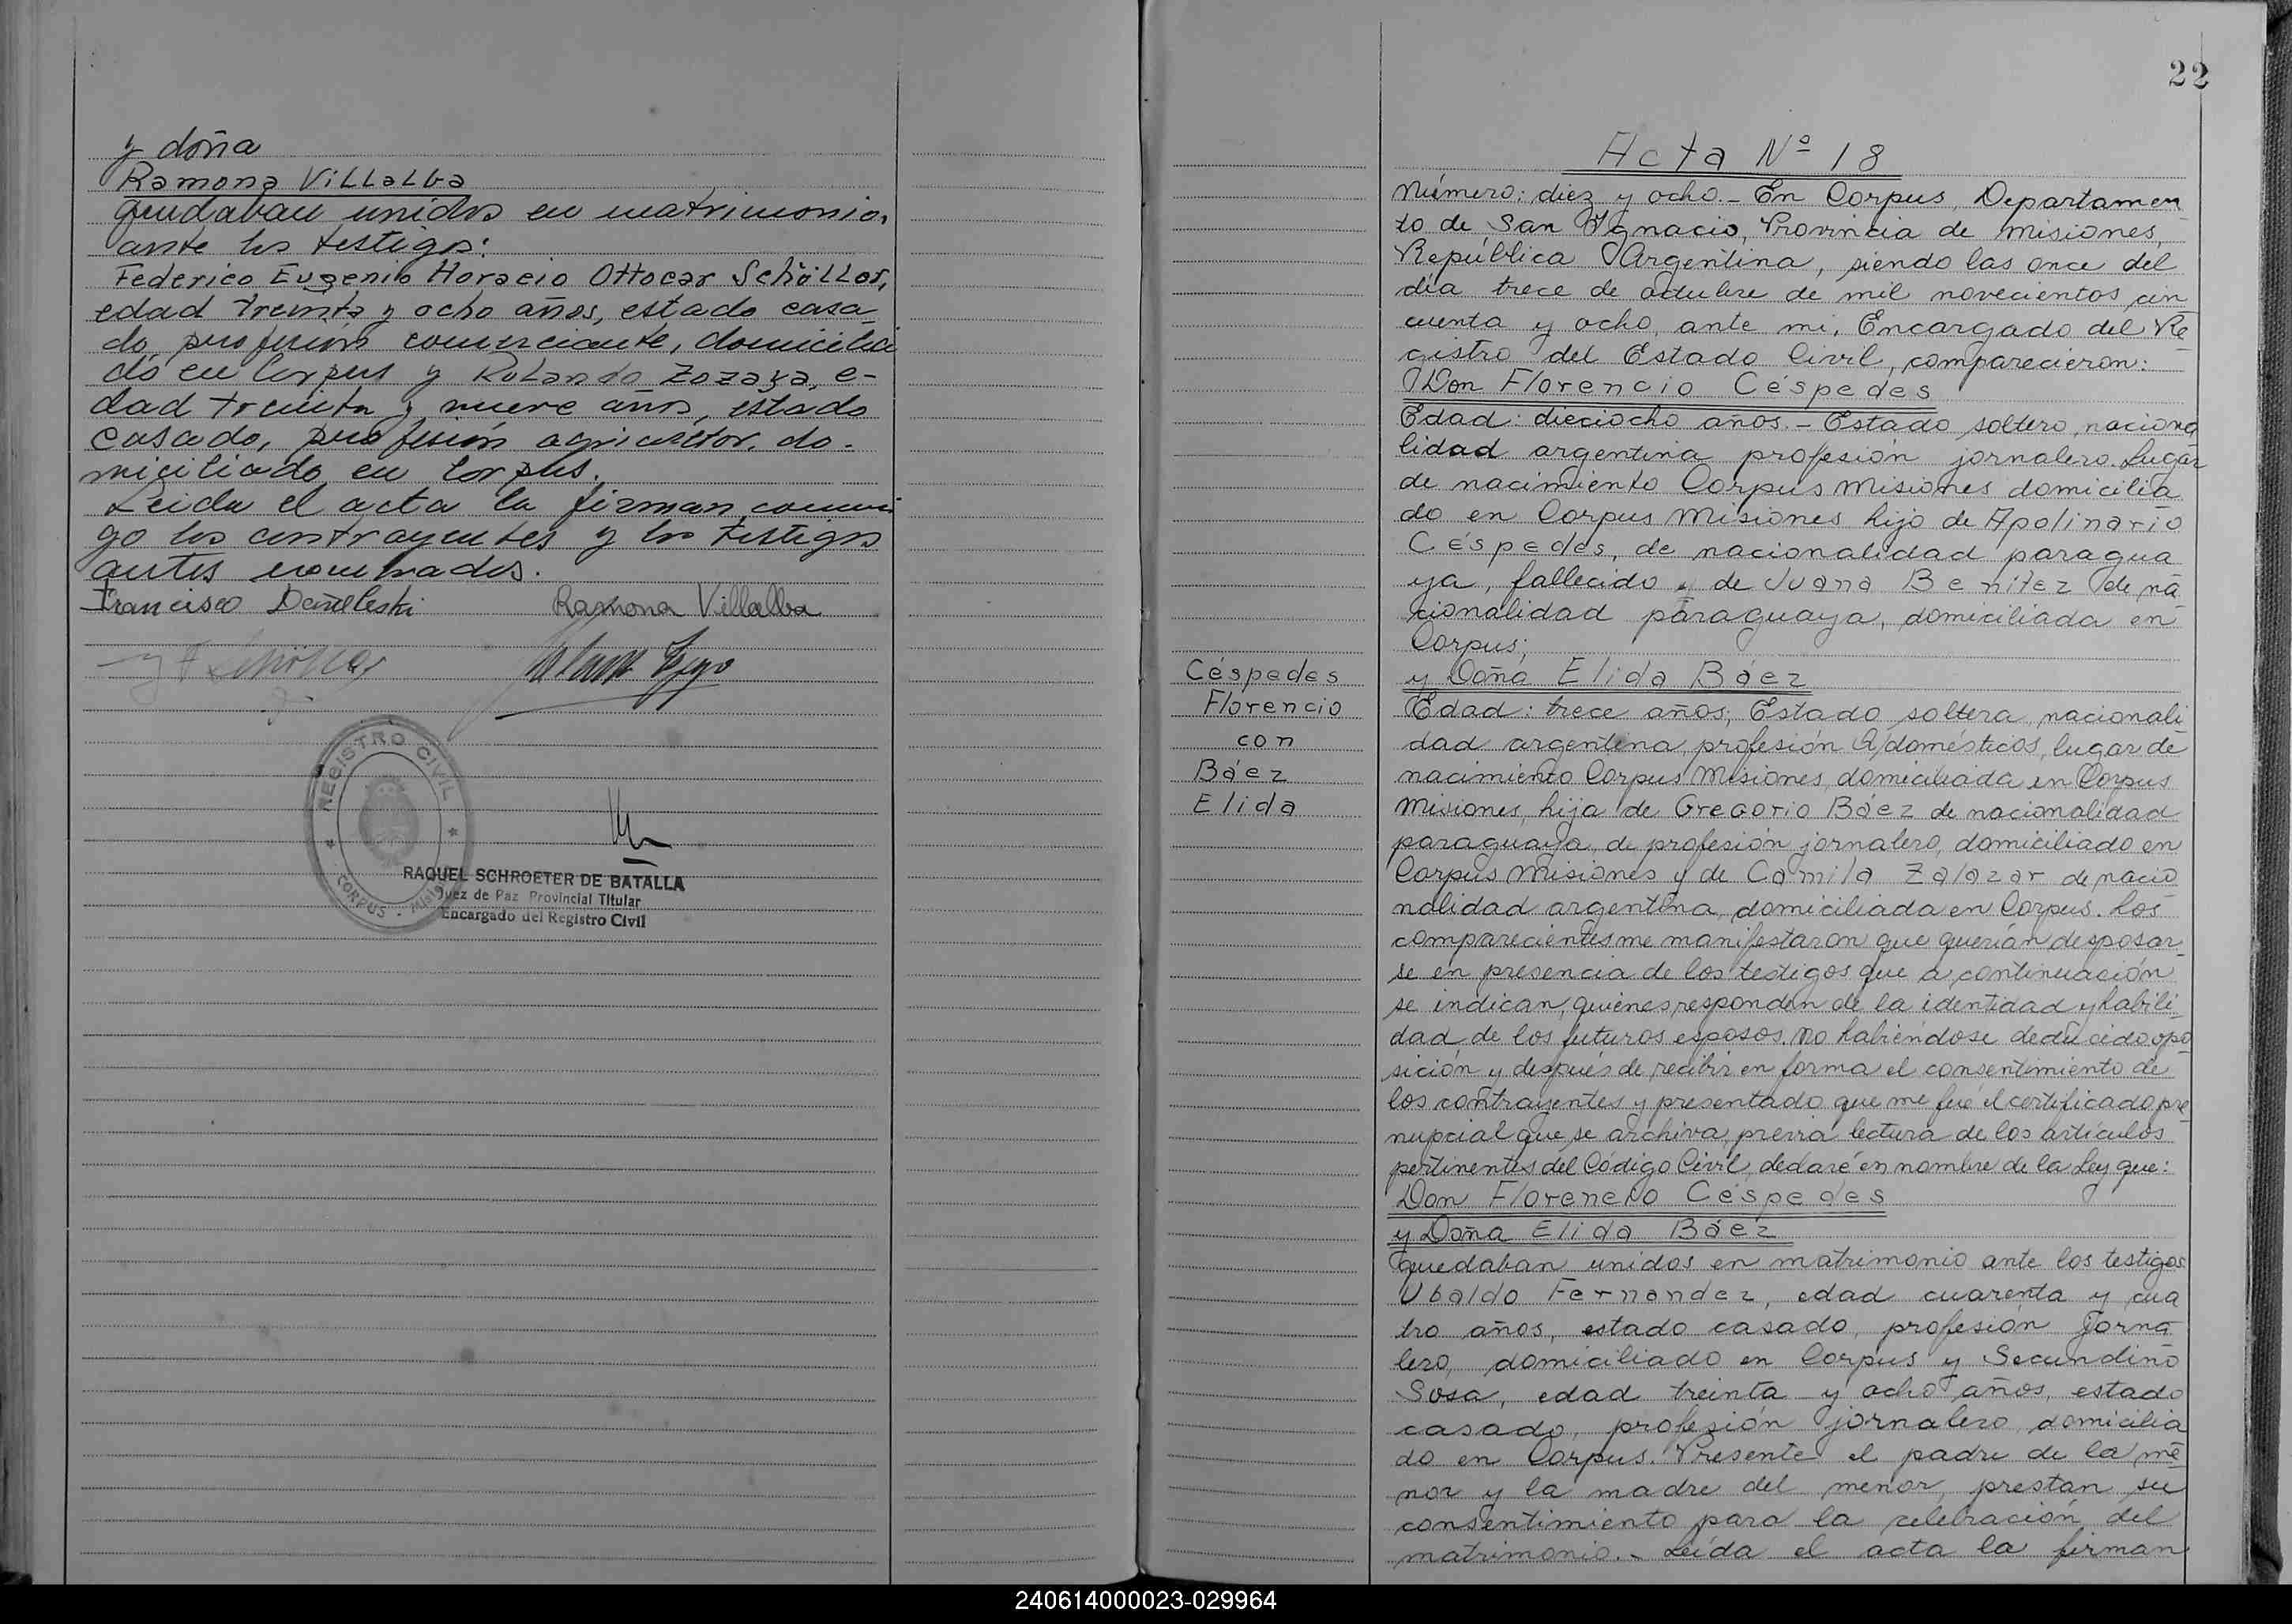 y doña
Ramona Villalba
quedaban unidos en matrimonio,
ante los testigos:
Federico Eugenio Horacio Ottocar Schöller,
edad treinta y ocho años, estado casa
do, profesión comerciante, domicilia
do en Corpus y Rolando Zozaya, e-
dad treinta y nueve años, estado
casado, profesión agricultor, do-
miciliado en Corpus.
Leida el acta la firman conmi
go los contrayentes y los testigos
antes nombrados.
Francisco Ramona Villalba
REGISTRO CIVIL
CORPUS - Misio
RAQUEL SCHROETER DE BATALLA
Juez de Paz Provincial Titular
Encargado del Registro Civil
22
Acta Nº 18
Número: diez y ocho.- En Corpus, Departamen
to de San Ignacio, Provincia de Misiones,
República Argentina, siendo las once del
día trece de octubre de mil novecientos cin
cuenta y ocho, ante mi, Encargado del Re
gistro del Estado Civil, comparecieron:
Don Florencio Céspedes
Edad: dieciocho años.- Estado soltero, naciona
lidad argentina profesión jornalero. Lugar
de nacimiento Corpus Misiones domicilia
do en Corpus Misiones hijo de Apolinario
Céspedes, de nacionalidad paragua
ya, fallecido y de Juana Benitez de na
cionalidad paraguaya, domiciliada en
Corpus;
y Doña Elida Báez
Edad: trece años; Estado soltera, nacionali
dad argentina, profesión Q/domésticos, lugar de
nacimiento Corpus Misiones, domiciliada en Corpus
Misiones, hija de Gregorio Báez de nacionalidad
paraguaya, de profesión jornalero, domiciliado en
Corpus Misiones y de Camila Zalazar de nacio
nalidad argentina, domiciliada en Corpus. Los
comparecientes me manifestaron que querían desposar
se en presencia de los testigos que a continuación
se indican, quienes responden de la identidad y habili
dad de los futuros esposos. No habiéndose deducido opo
sición y después de recibir en forma el consentimiento de
los contrayentes y presentado que me fué el certificado pre
nupcial que se archiva, previa lectura de los artículos
pertinentes del Código Civil, declaré en nombre de la Ley que:
Don Florencio Céspedes
y Doña Elida Báez
quedaban unidos en matrimonio ante los testigos
Ubaldo Fernandez, edad cuarenta y cua
tro años, estado casado, profesión jorna
lero, domiciliado en Corpus y Secundino
Sosa, edad treinta y ocho años, estado
casado, profesión jornalero, domicilia
do en Corpus. Presente el padre de la me
nor y la madre del menor, prestan su
consentimiento para la celebración del
matrimonio.- Leída el acta la firman
Céspedes
Florencio
con
Báez
Elida
240614000023-029964